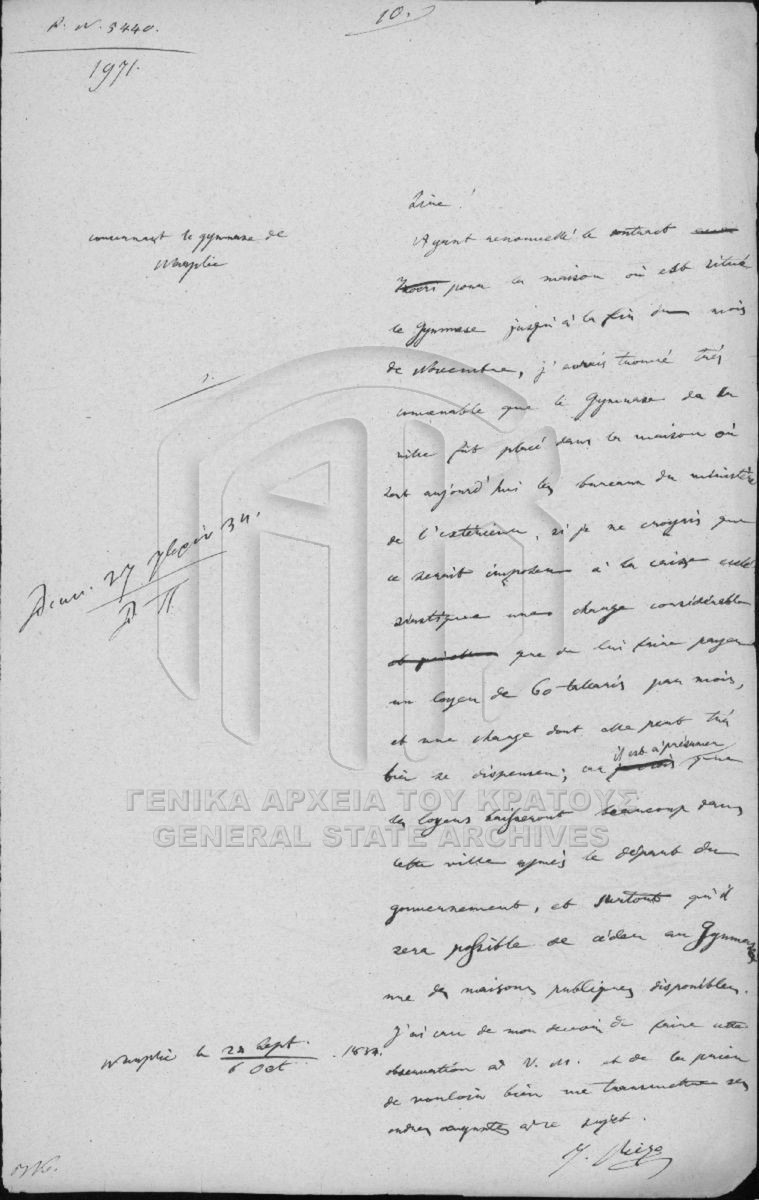 A. N. 5440.
10.
1971.
Sire!
concernant le gymnase de
Nauplie
Ayant renouvellé le contract
pour la maison où est situé
le Gymnase jusqu'à la fin du mois
de Novembre, j'aurais trouvé très
convenable que le Gymnase de la
ville fût placé dans la maison où
sont aujourd'hui les bureaux du ministère
de l'extérieur, si je ne croyais que
ce serait imposer à la caisse ecclé
siastique une charge considérable
que de lui faire payer
un loyer de 60 talaris par mois,
et une charge dont elle peut très
il est à présumer
bien se dispenser; car que
les loyers baisseront beaucoup dans
cette ville après le départ du
gouvernement, et surtout qu'il
sera possible de céder au Gymnase
une des maisons publiques disponibles.
J'ai cru de mon devoir de faire cette
observation à V. M. et de la prier
de vouloir bien me transmettre ses
ordres augustes à ce sujet.
Nauplie le 24 Sept. 1834.
6 Oct
ΓΕΝΙΚΑ ΑΡΧΕΙΑ ΤΟΥ ΚΡΑΤΟΥΣ
GENERAL STATE ARCHIVES